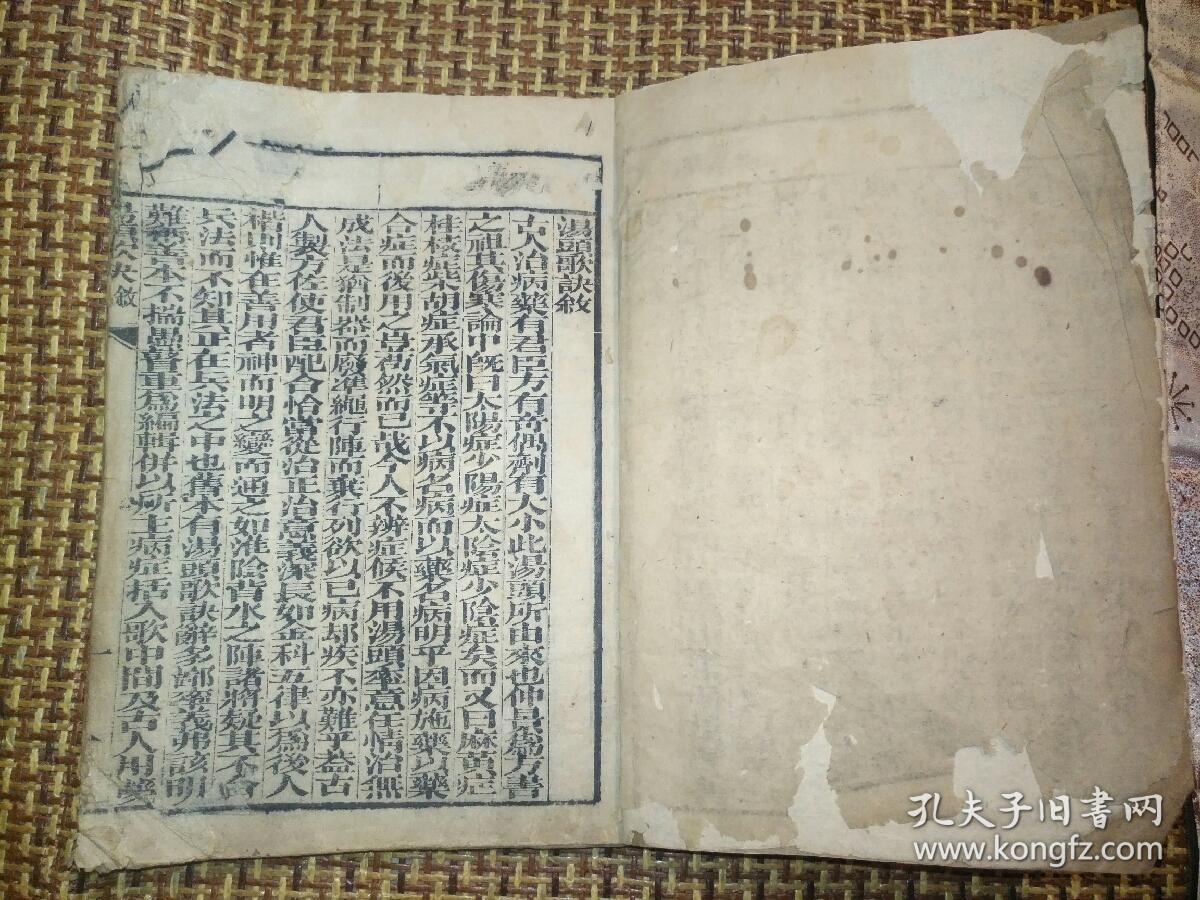 湯頭歌訣敘
古人治病藥有君臣方有奇偶劑有大小此湯頭所由來也仲景為方書
之祖其傷寒論中既曰太陽症少陽症太陰症少陰症矣而又曰麻黃症
桂枝症柴胡症承氣症等不以病名病而以藥名病明乎因病施藥以藥
合症而後用之豈苟然而已哉今人不辨症候不用湯頭率意任情治無
成法是猶制器而廢準繩行陣而棄行列欲以已病却疾不亦難乎蓋古
人製方佐使君臣配合恰當從治正治意義深長如金科玉律以為後人
楷則惟在善用者神而明之變而通之如淮陰背水之陣諸將疑其不合
兵法而不知其正在兵法之中也舊本有湯頭歌訣辭多鄙率義弗該明
難稱善本不揣愚瞽重為編輯併以所主病症括入歌中間及古人用藥
湯頭歌訣敘
孔夫子旧书网
www.kongfz.com